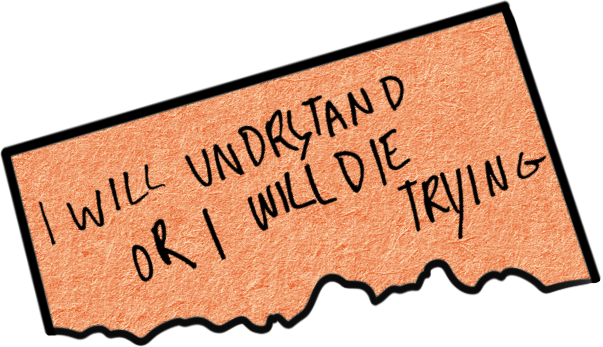 I WILL UNDRSTAND
OR I WILL DIE
TRYING